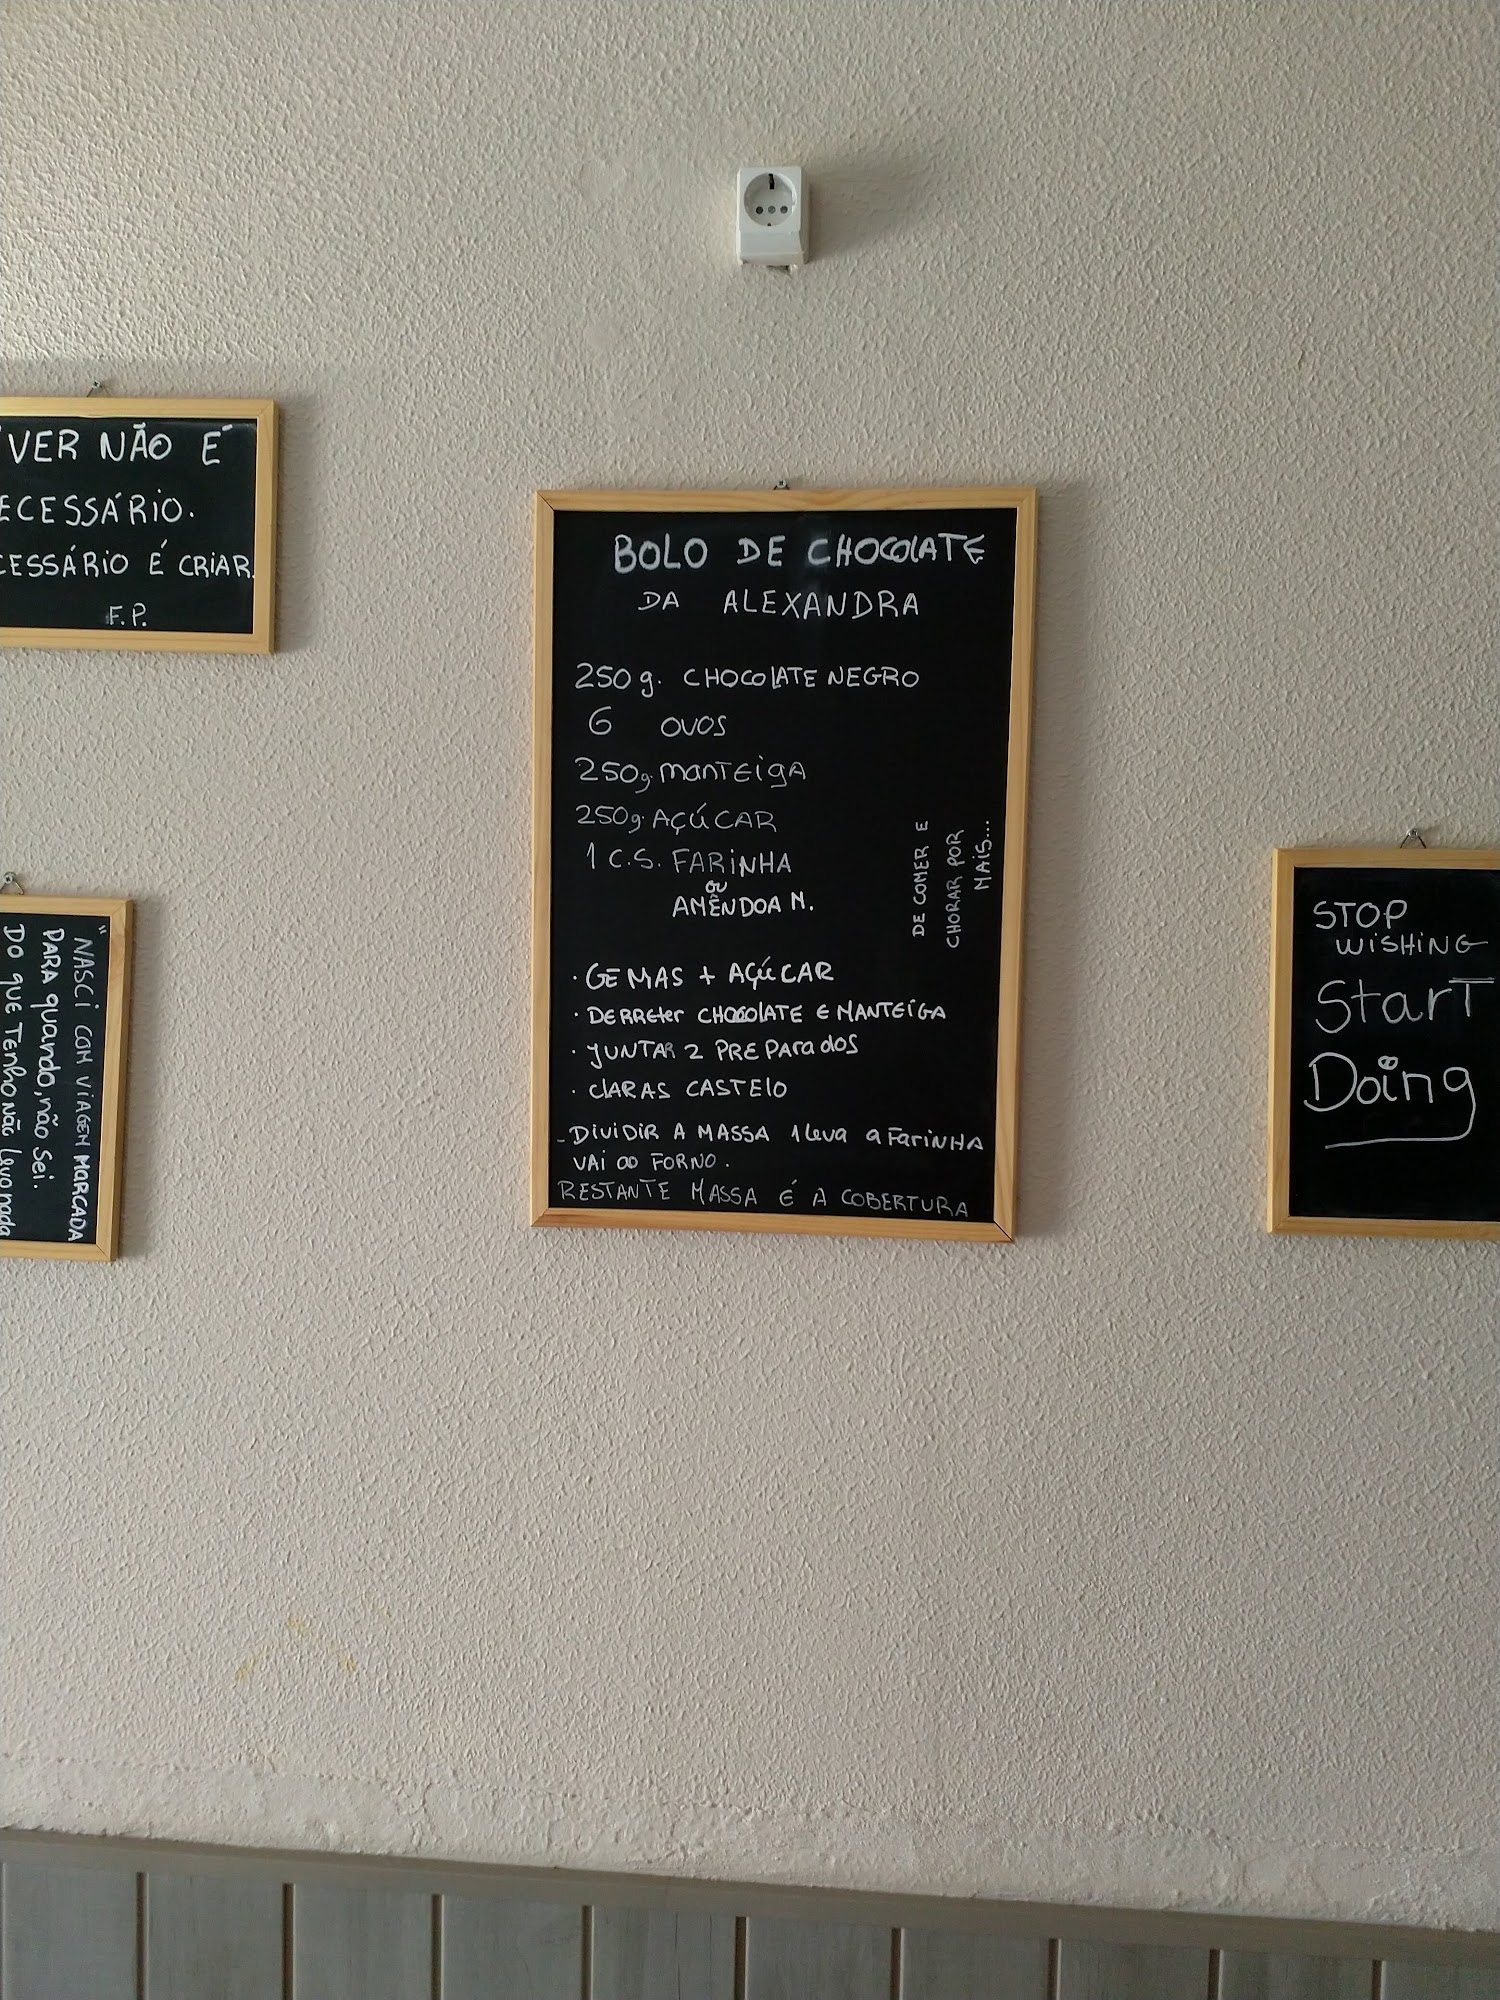 VER NÃO É
ECESSÁRIO.
CESSÁRIO É CRIAR.
F.P.
"NASCI COM VIAGEM MARCADA
PARA quando, não sei.
DO QUE TENHO NÃO levo nada
BOLO DE CHOCOLATE
DA ALEXANDRA
250 g. CHOCOLATE NEGRO
6 OVOS
250g. manTEigA
250g. AÇÚCAR
1 C.S. FARINHA
ou
AMÊNDOA M.
DE COMER E
CHORAR POR
MAIS...
· GEMAS + AÇÚCAR
· DERReter CHOCOLATE E MANTEIGA
· JUNTAR 2 PREPARAdOS
· ClARAS CASTElO
- DIVIDIR A MASSA 1 leva a FArINHA
VAI ao FORNO.
RESTANTE MASSA É A COBERTURA
STOP
WISHING
StarT
Doing